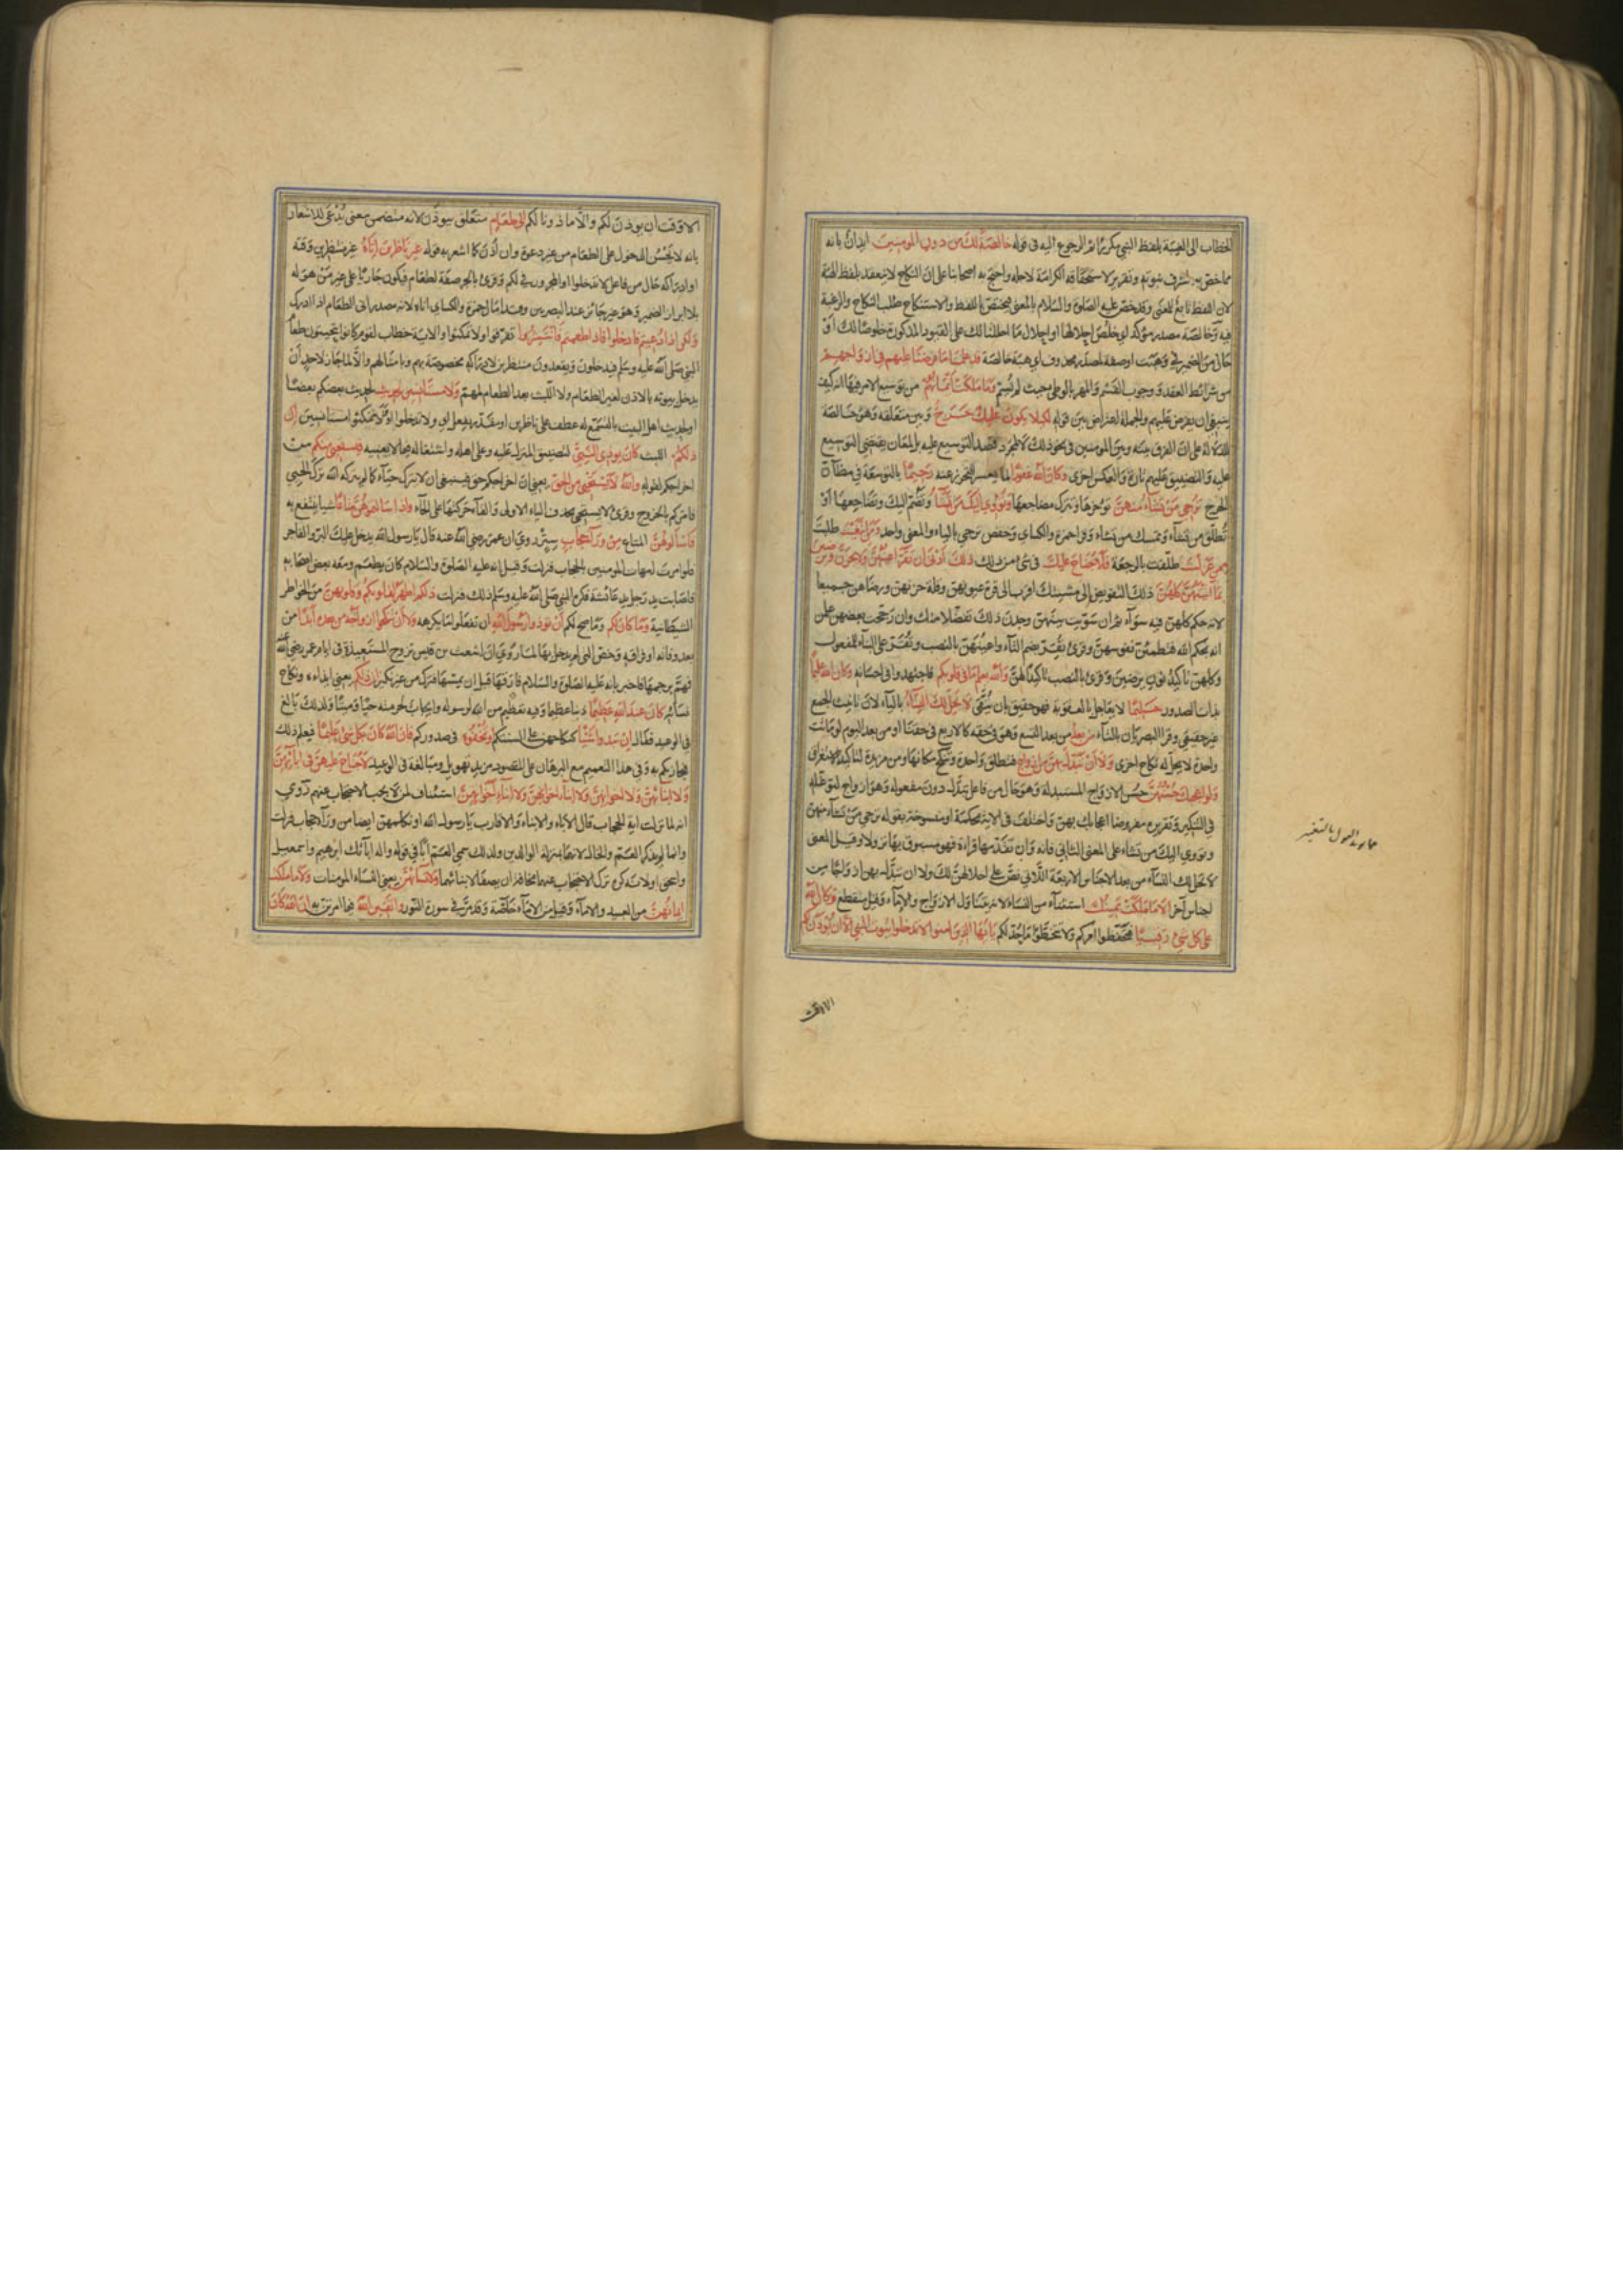 الخطاب الى الغيبة بلفظ النبي مكررا ثم الرجوع اليه في قوله خالصة لك من دون المومنين ايذان بانه
مما خص به لشرف نبوته وتقرير لاستحقاقه الكرامة لاجله واحتج به اصحابنا على ان النكاح لا ينعقد بلفظ الهبة
لان اللفظ تابع للمعنى وقد خص عليه الصلوة والسلام بالمعنى فيختص باللفظ والاستنكاح طلب النكاح والرغبة
فيه وخالصة مصدر مؤكد اي خلص احلالها او احلال ما احللنا لك على القيود المذكورة خلوصا لك او
حال من الضمير في وهبت او صفة لمصدر محذوف اي هبة خالصة قد علمنا ما فرضنا عليهم في ازواجهم
من شرائط العقد ووجوب القسم والمهر بالوطي حيث لم يسم وما ملكت ايمانهم من توسيع الامر فيها انه كيف
ينبغي ان يفرض عليهم والجملة اعتراض بين قوله لكيلا يكون عليك حرج وبين متعلقه وهو خالصة
للدلالة على ان الفرق بينه وبين المومنين في نحو ذلك لا لمجرد قصد التوسيع عليه بل لمعان يقتضي التوسيع
عليه والتضييق عليهم تارة وبالعكس اخرى وكان الله غفورا لما يعسر التحرز عنه رحيما بالتوسعة في مظان
الحرج ترجي من تشاء منهن تؤخرها وتترك مضاجعها وتؤوي اليك من تشاء وتضم اليك وتضاجعها او
تطلق من تشاء وتمسك من تشاء وقرا حمزة والكساي وحفص ترجي بالياء والمعنى واحد ومن ابتغيت طلبت
ممن عزلت طلقت بالرجعة فلا جناح عليك في شئ من ذلك ذلك ادنى ان تقر اعينهن ولا يحزن ويرضين
بما اتيتهن كلهن ذلك التفويض الى مشيئتك اقرب الى قرة عيونهن وقلة حزنهن ورضاهن جميعا
لانه حكم كلهن فيه سوآء ثم ان سويت بينهن وجدن ذلك تفضلا منك وان رجحت بعضهن علمن
انه بحكم الله فتطمئن نفوسهن وقرئ تقر بضم التآء واعينهن بالنصب وتقر على البناء للمفعول
وكلهن تاكيد نون يرضين وقرئ بالنصب تاكيدا لهن والله يعلم ما في قلوبكم فاجتهدوا في احسانه وكان الله عليما
بذات الصدور حليما لا يعاجل بالعقوبة فهو حقيق بان يتقى لا يحل لك النساء بالياء لان تانيث الجمع
غير حقيقي وقرا البصريان بالتآء من بعد من بعد التسع وهو في حقه كالاربع في حقنا او من بعد اليوم لو ماتت
واحدة لا يحل له نكاح اخرى ولا ان تبدل بهن من ازواج فتطلق واحدة وتنكح مكانها ومن مزيدة لتاكيد الاستغراق
ولو اعجبك حسنهن حسن الازواج المستبدلة وهو حال من فاعل تبدل دون مفعوله وهو ازواج لتوغله
في التنكير وتقديره مفروضا اعجابك بهن واختلف في الاية محكمة او منسوخة بقوله ترجي من تشاء منهن
وتؤوي اليك من تشاء على المعنى الثاني فانه وان تقدمها قراءة فهو مسبوق بها نزولا وقيل المعنى
لا تحل لك النسآء من بعد الاجناس الاربعة اللاتي نص على احلالهن لك ولا ان تبدل بهن ازواجا من
اجناس اخر الا ما ملكت يمينك استثناء من النساء لانه يتناول الازواج والاماء وقيل منقطع وكان الله
على كل شئ رقيبا فتحفظوا امركم ولا تتخطوا ما حد لكم يا ايها الذين امنوا لا تدخلوا بيوت النبي الا ان يؤذن لكم
الا وقت
الا وقت ان يوذن لكم والا ماذونا لكم الى طعام متعلق بيوذن لانه متضمن معنى يدعى للاشعار
بانه لا يحسن الدخول على الطعام من غير دعوة وان اذن كما اشعر به قوله غير ناظرين اناه غير منتظرين وقته
او ادراكه حال من فاعل لا تدخلوا او المجرور في لكم وقرئ بالجر صفة لطعام فيكون جاريا على غير من هو له
بلا ابراز الضمير وهو غير جائز عند البصريين وقد امال حمزة والكساي اناه لانه مصدر انى الطعام اذا ادرك
ولكن اذا دعيتم فادخلوا فاذا طعمتم فانتشروا تفرقوا ولا تمكثوا والاية خطاب لقوم كانوا يتحينون طعام
النبي صلى الله عليه وسلم فيدخلون ويقعدون منتظرين لادراكه مخصوصة بهم وبامثالهم والا لما جاز لاحد ان
يدخل بيوته بالاذن لغير الطعام ولا اللبث بعد الطعام لمهم ولا مستانسين لحديث لحديث بعضكم بعضا
او لحديث اهل البيت بالتسمع له عطف على ناظرين او مقدر بفعل اي ولا تدخلوا او لا تمكثوا مستانسين ان
ذلكم اللبث كان يوذي النبي لتضييق المنزل عليه وعلى اهله واشتغاله فيما لا يعنيه فيستحيي منكم من
اخراجكم لقوله والله لا يستحيي من الحق يعني ان اخراجكم حق فينبغي ان لا يترك حيآء كما لم يتركه الله ترك الحيي
فامركم بالخروج وقرئ لا يستحي بحذف الياء الاولى والقآء حركتها على الحآء واذا سالتموهن متاعا شيا ينتفع به
فاسالوهن المتاع من ورآء حجاب ستر روي ان عمر رضي الله عنه قال يا رسول الله يدخل عليك البر والفاجر
فلو امرت امهات المومنين بالحجاب فنزلت وقيل انه عليه الصلوة والسلام كان يطعم ومعه بعض اصحابه
فاصابت يد رجل يد عائشة فكره النبي صلى الله عليه وسلم ذلك فنزلت ذلكم اطهر لقلوبكم وقلوبهن من الخواطر
الشيطانية وما كان لكم وما صح لكم ان توذوا رسول الله ان تفعلوا ما يكرهه ولا ان تنكحوا ازواجه من بعده ابدا من
بعد وفاته او فراقه وخص التي لم يدخل بها لما روي ان اشعث بن قيس تزوج المستعيذة في ايام عمر رضي الله عنه
فهم برجمها فاخبر بانه عليه الصلوة والسلام فارقها قبل ان يمسها فترك من غير نكير ان ذلكم يعني ايذاءه ونكاح
نسائه كان عند الله عظيما ذنبا عظيما وفيه تعظيم من الله لرسوله وايجاب لحرمته حيا وميتا ولذلك بالغ
في الوعيد فقال ان تبدوا شيئا كنكاحهن على السنتكم او تخفوه في صدوركم فان الله كان بكل شئ عليما فيعلم ذلك
فيجازيكم به وفي هذا التعميم مع البرهان على المقصود مزيد تهويل ومبالغة في الوعيد لا جناح عليهن في ابائهن
ولا ابنائهن ولا اخوانهن ولا ابناء اخوانهن ولا ابناء اخواتهن استئناف لمن لا يجب الاحتجاب عنهم روي
انه لما نزلت اية الحجاب قال الاباء والابناء والاقارب يا رسول الله او نكلمهن ايضا من ورآء حجاب فنزلت
وانما لم يذكر العم والخال لانهما بمنزلة الوالدين ولذلك سمي العم ابا في قوله واله ابائك ابرهيم واسمعيل
واسحق او لانه كره ترك الاحتجاب عنهما مخافة ان يصفا لابنائهما ولا نسائهن يعني النساء المومنات ولا ما ملكت
ايمانهن من العبيد والامآء وقيل من الامآء خاصة وقد مر في سورة النور واتقين الله فيما امرتن به ان الله كان